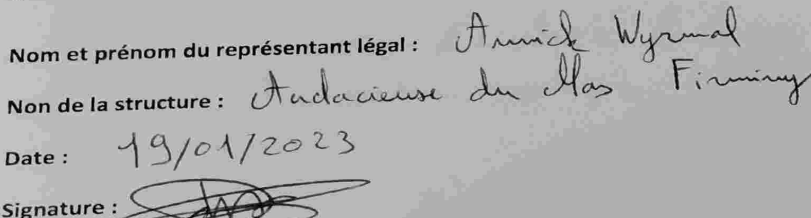 Nom et prénom du représentant légal : Annick Wyrmal
Non de la structure : Audacieuse du Mas Firminy
Date : 19/01/2023
Signature :